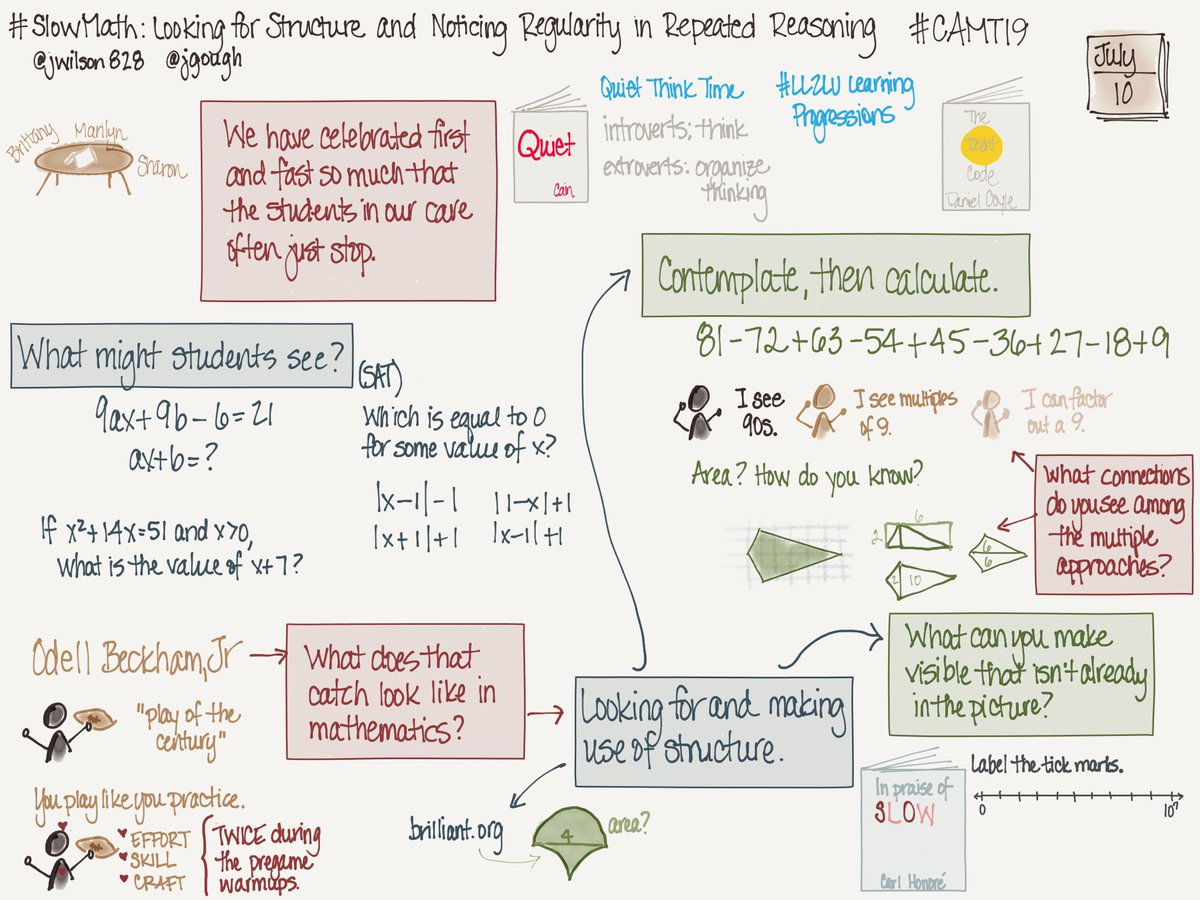 #SlowMath: Looking for Structure and Noticing Regularity in Repeated Reasoning #CAMT19
@jwilson828 @jgough
July
10
Brittany
Marilyn
Sharon
We have celebrated first
and fast so much that
the students in our care
often just stop.
Quiet
Cain
Quiet Think Time
introverts: think
extroverts: organize
thinking
#LL2LU Learning
Progressions
The
Talent
Code
Daniel Coyle
Contemplate, then calculate.
81-72+63-54+45-36+27-18+9
I see
90s.
I see multiples
of 9.
I can factor
out a 9.
What might students see?
9ax+9b-6=21
ax+b=?
If x²+14x=51 and x>0,
what is the value of x+7?
(SAT)
Which is equal to 0
for some value of x?
|x-1|-1
|1-x|+1
|x+1|+1
|x-1|+1
Area? How do you know?
6
2
2
10
6
6
What connections
do you see among
the multiple
approaches?
Odell Beckham, Jr
"play of the
century"
What does that
catch look like in
mathematics?
Looking for and making
use of structure.
What can you make
visible that isn't already
in the picture?
You play like you practice.
EFFORT
SKILL
CRAFT
TWICE during
the pregame
warmups.
brilliant.org
4
area?
In praise of
SLOW
Carl Honoré
Label the tick marks.
0
10⁷